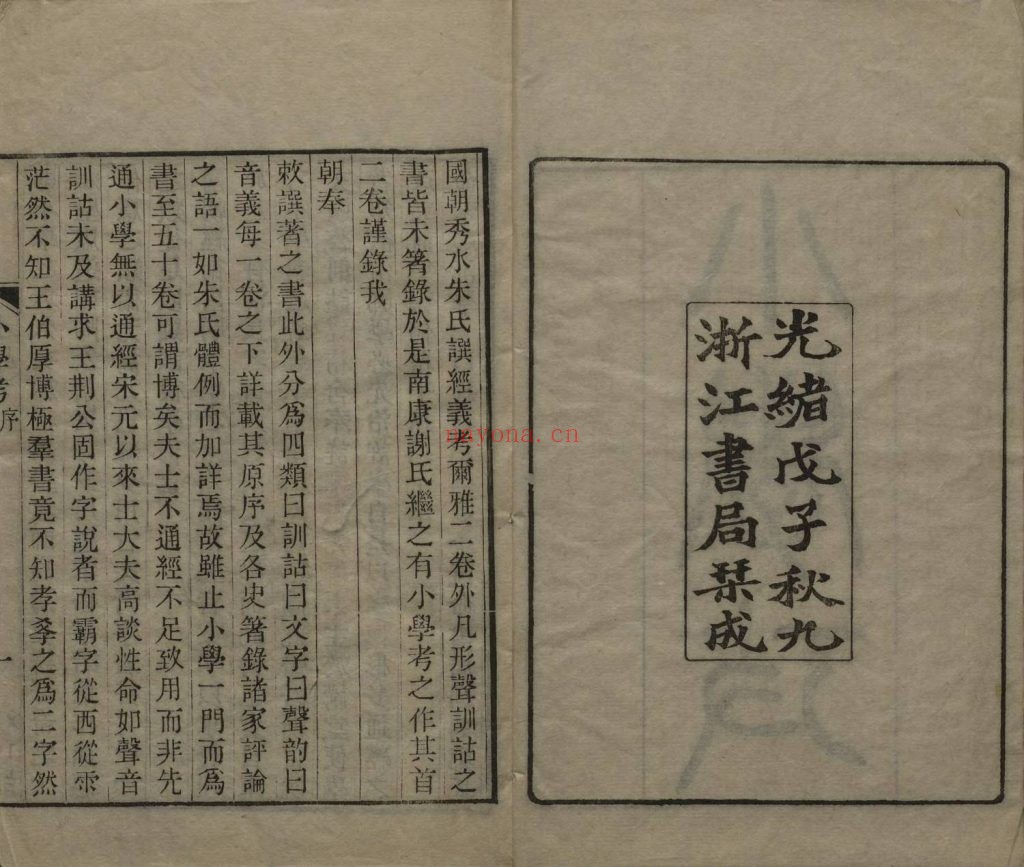 光緒戊子秋九
浙江書局栞成
國朝秀水朱氏譔經義考爾雅二卷外凡形聲訓詁之
書皆未箸錄於是南康謝氏繼之有小學考之作其首
二卷謹錄我
朝奉
敕譔著之書此外分爲四類曰訓詁曰文字曰聲韵曰
音義每一卷之下詳載其原序及各史箸錄諸家評論
之語一如朱氏體例而加詳焉故雖止小學一門而爲
書至五十卷可謂博矣夫士不通經不足致用而非先
通小學無以通經宋元以來士大夫高談性命如聲音
訓詁未及講求王荆公固作字說者而霸字從西從雫
茫然不知王伯厚博極羣書竟不知孝㸚之爲二字然
小學考 序
一
nayona.cn